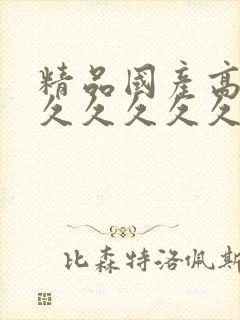 精品國産高
久久久久久
比森特洛佩斯